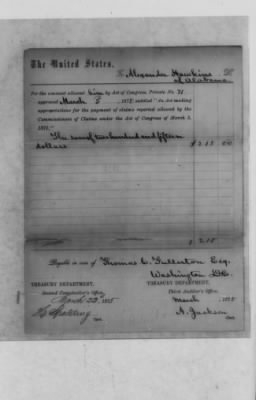 The United States.
To Alexander Hawkins Dr.
of Alabama
For the amount allowed him by Act of Congress, Private No. 71
approved March 3, 1875, entitled "An Act making
appropriations for the payment of claims reported allowed by the
Commissioners of Claims under the Act of Congress of March 3,
1871."
The sum of two hundred and fifteen
dollars $215 00
$ 215
Payable in care of Thomas C. Fullerton Esq.
Washington D.C.
TREASURY DEPARTMENT, TREASURY DEPARTMENT,
Second Comptroller's Office, Third Auditor's Office,
March 23, 1875 March 1875
Spalding A. Jackson
Clerk. Clerk.